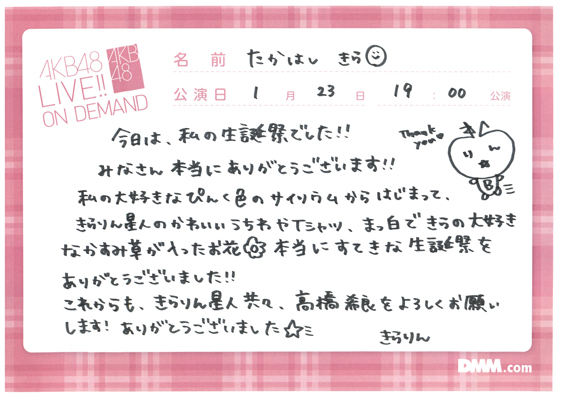 AKB48
LIVE!!
ON DEMAND
AKB
48
名前 たかはし きら
公演日 1月 23日 19:00 公演
今日は、私の生誕祭でした!!
みなさん本当にありがとうございます!!
Thank
you
きらりん
B
私の大好きなぴんく色のサイリウムからはじまって、
きらりん星人のかわいいうちわやTシャツ、まっ白できらの大好き
なかすみ草が入ったお花 本当にすてきな生誕祭を
ありがとうございました!!
これからも、きらりん星人共々、高橋希良をよろしくお願い
します! ありがとうございました☆
きらりん
DMM.com